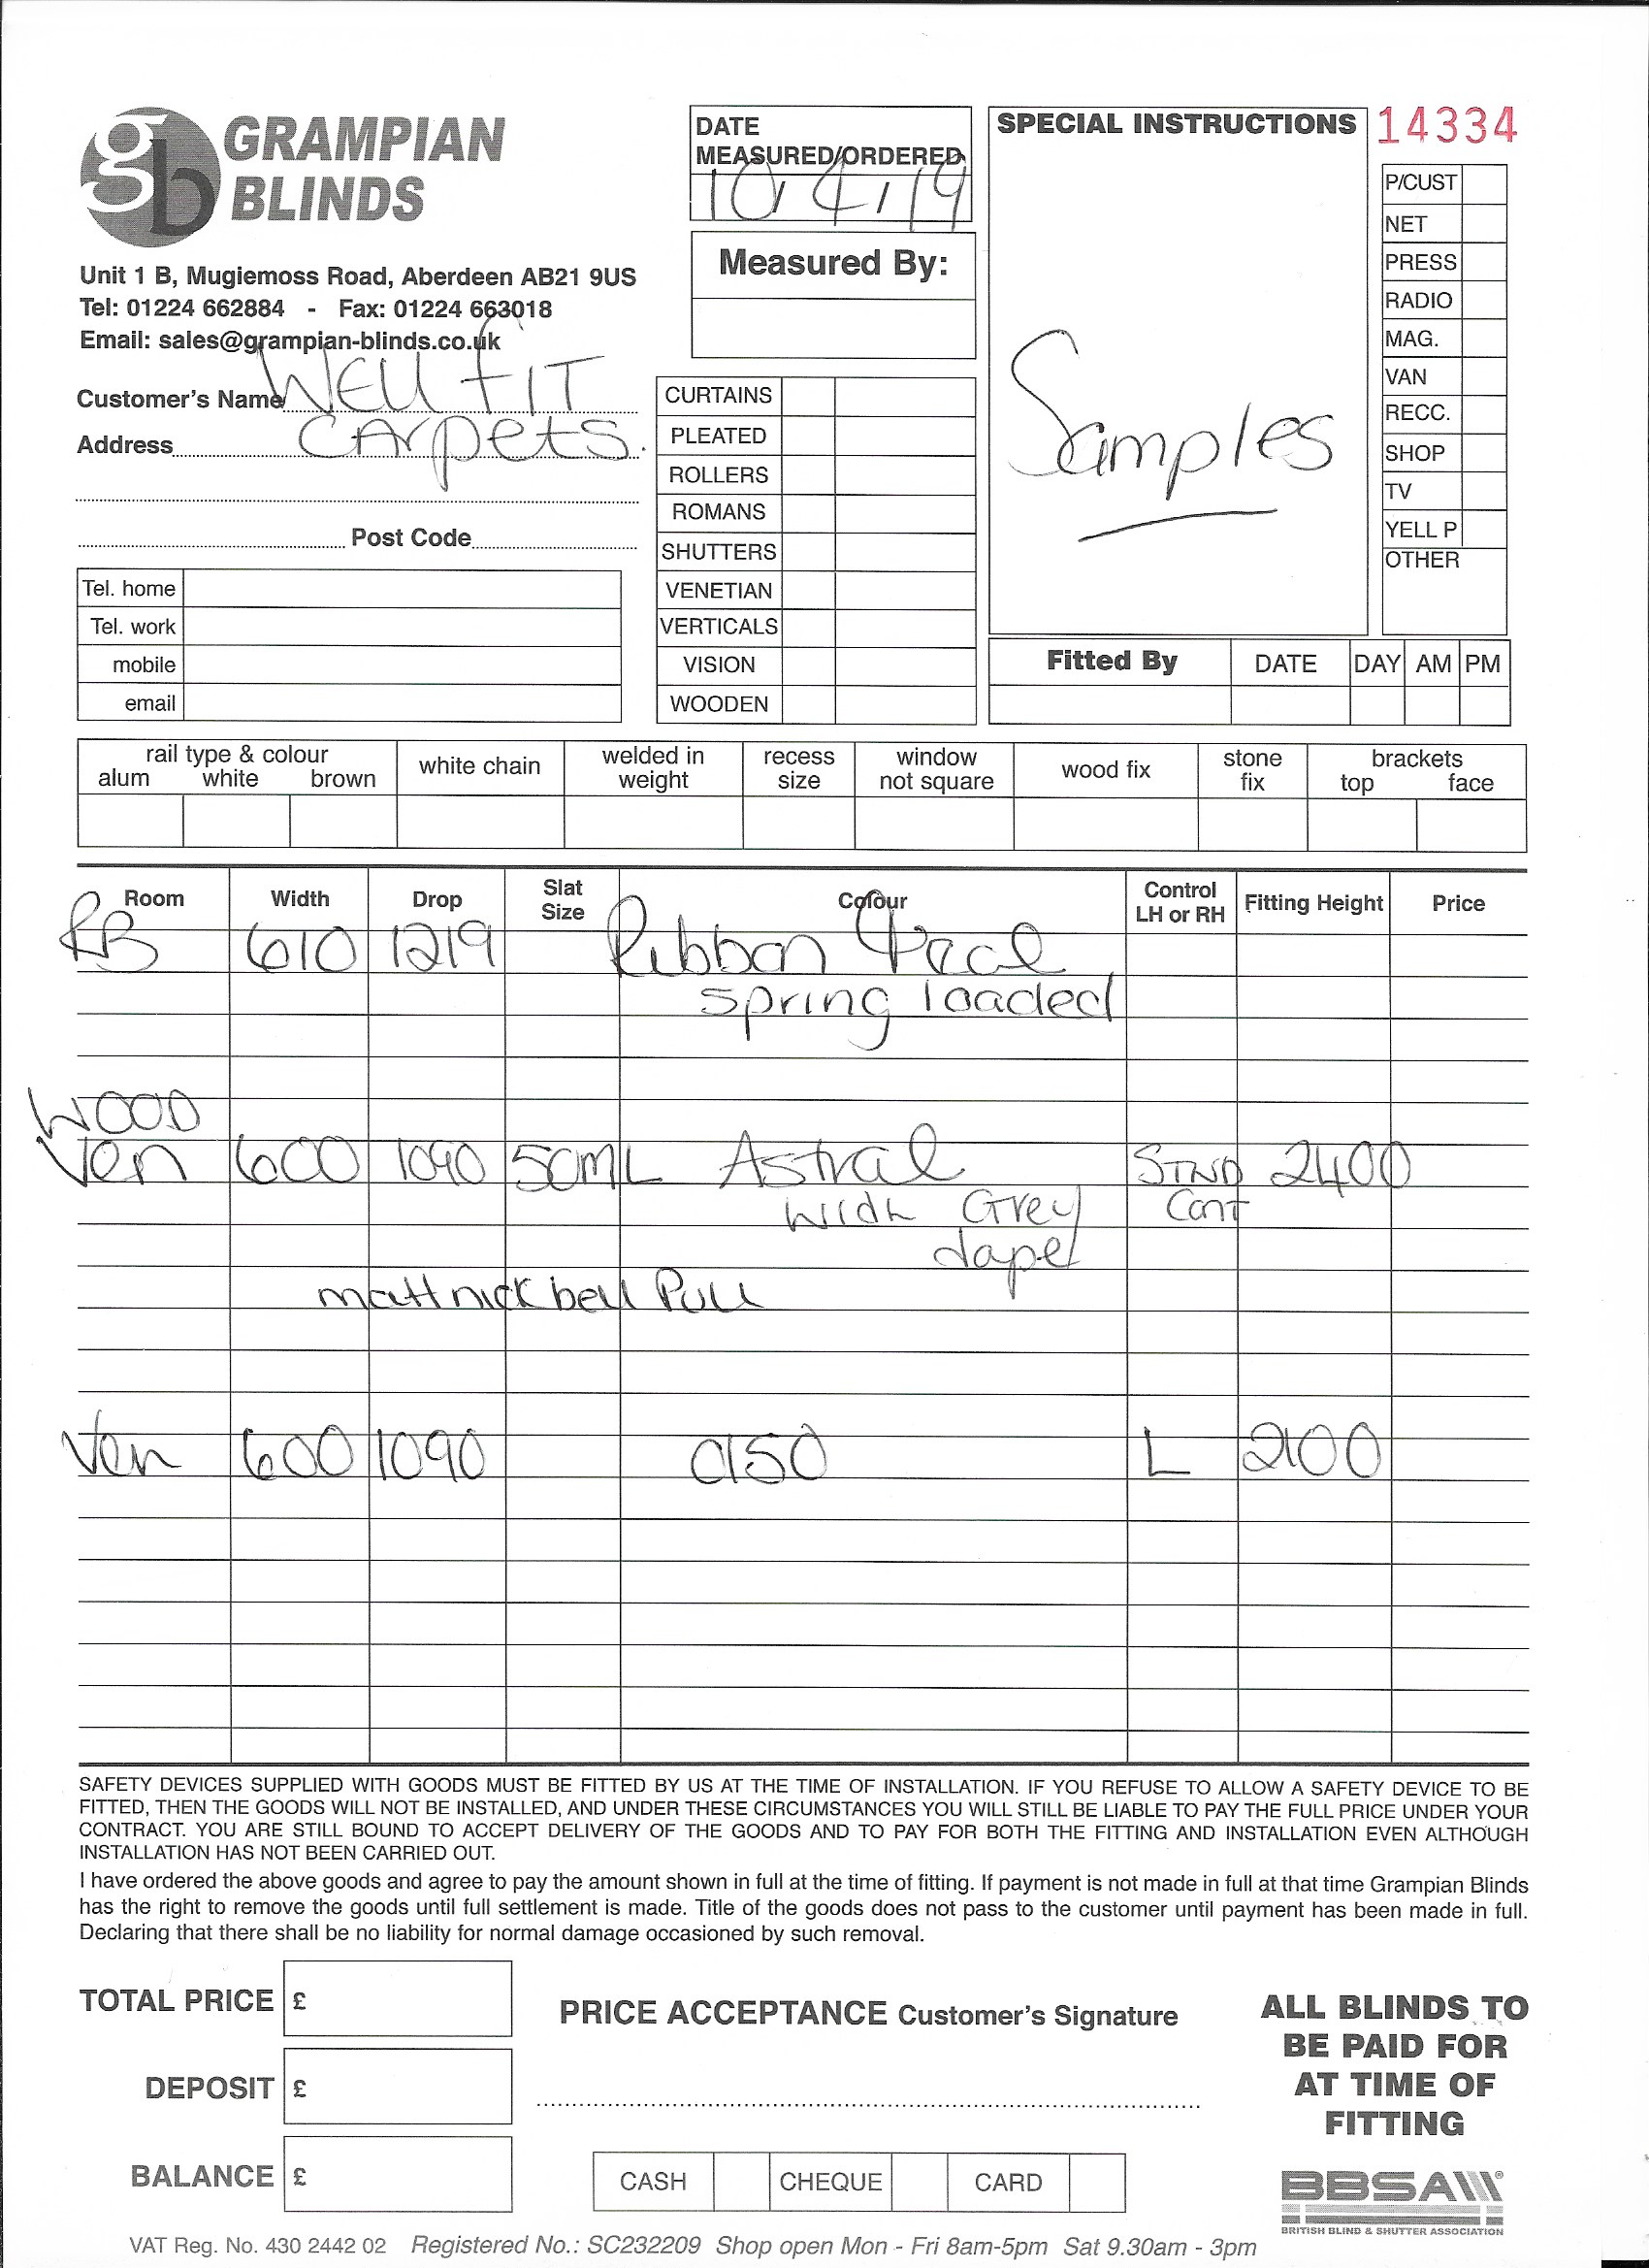 gb GRAMPIAN
BLINDS
Unit 1 B, Mugiemoss Road, Aberdeen AB21 9US
Tel: 01224 662884 - Fax: 01224 663018
Email: sales@grampian-blinds.co.uk
Customer's Name WELL FIT
Address CARpets.
Post Code
Tel. home
Tel. work
mobile
email
DATE
MEASURED/ORDERED
10/4/19
Measured By:
CURTAINS
PLEATED
ROLLERS
ROMANS
SHUTTERS
VENETIAN
VERTICALS
VISION
WOODEN
SPECIAL INSTRUCTIONS
Samples
14334
P/CUST
NET
PRESS
RADIO
MAG.
VAN
RECC.
SHOP
TV
YELL P
OTHER
Fitted By DATE DAY AM PM
rail type & colour
alum white brown
white chain
welded in
weight
recess
size
window
not square
wood fix
stone
fix
brackets
top face
Room Width Drop Slat Size Colour Control LH or RH Fitting Height Price
RB 610 1219 Ribbon
spring loaded
WOOD
Ven 600 1090 50ML Astral STND 2400
with Grey Cont
tape
matt nick bell Pull
Ven 600 1090 0150 L 2100
SAFETY DEVICES SUPPLIED WITH GOODS MUST BE FITTED BY US AT THE TIME OF INSTALLATION. IF YOU REFUSE TO ALLOW A SAFETY DEVICE TO BE
FITTED, THEN THE GOODS WILL NOT BE INSTALLED, AND UNDER THESE CIRCUMSTANCES YOU WILL STILL BE LIABLE TO PAY THE FULL PRICE UNDER YOUR
CONTRACT. YOU ARE STILL BOUND TO ACCEPT DELIVERY OF THE GOODS AND TO PAY FOR BOTH THE FITTING AND INSTALLATION EVEN ALTHOUGH
INSTALLATION HAS NOT BEEN CARRIED OUT.
I have ordered the above goods and agree to pay the amount shown in full at the time of fitting. If payment is not made in full at that time Grampian Blinds
has the right to remove the goods until full settlement is made. Title of the goods does not pass to the customer until payment has been made in full.
Declaring that there shall be no liability for normal damage occasioned by such removal.
TOTAL PRICE £
DEPOSIT £
BALANCE £
PRICE ACCEPTANCE Customer's Signature
CASH CHEQUE CARD
ALL BLINDS TO
BE PAID FOR
AT TIME OF
FITTING
BBSA
BRITISH BLIND & SHUTTER ASSOCIATION
VAT Reg. No. 430 2442 02 Registered No.: SC232209 Shop open Mon - Fri 8am-5pm Sat 9.30am - 3pm